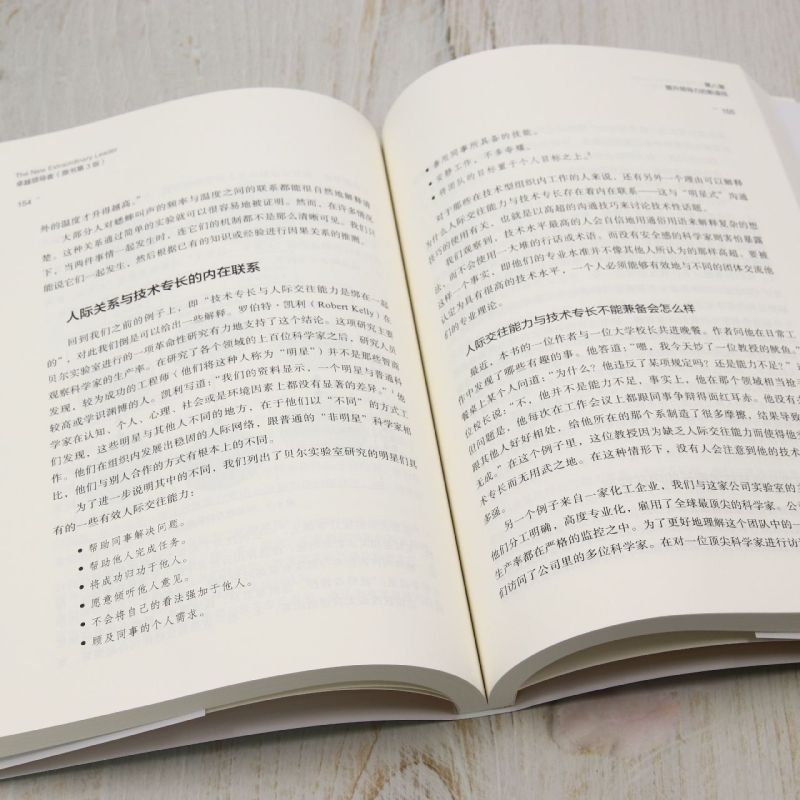 The New Extraordinary Leader
卓越领导者（原书第3版）
154
外的温度才升得越高。”
大部分人对蟋蟀叫声的频率与温度之间的联系都能很自然地解释清
楚，这种关系通过简单的实验就可以很容易地被证明。然而，在许多情况
下，当两件事情一起发生时，连它们的机制都不是那么清晰可见。我们只
能说它们一起发生，然后根据已有的知识或经验进行因果关系的推测。
人际关系与技术专长的内在联系
回到我们之前的例子上，即“技术专长与人际交往能力是绑在一起
的”，对此我们倒是可以给出一些解释。罗伯特·凯利（Robert Kelly）在
贝尔实验室进行的一项革命性研究有力地支持了这个结论。这项研究主要
观察科学家的生产率。在研究了各个领域的上百位科学家之后，研究人员
发现，较为成功的工程师（他们将这种人称为“明星”）并不是那些智商
较高或学识渊博的人。凯利写道：“我们的资料显示，一个明星与普通科
学家在认知、个人、心理、社会或是环境因素上都没有显著的差异。”他
们发现，这些明星与其他人不同的地方，在于他们以“不同”的方式工
作。他们在组织内发展出稳固的人际网络，跟普通的“非明星”科学家相
比，他们与别人合作的方式有根本上的不同。
为了进一步说明其中的不同，我们列出了贝尔实验室研究的明星们具
有的一些有效人际交往能力：
• 帮助同事解决问题。
• 帮助他人完成任务。
• 将成功归功于他人。
• 愿意倾听他人意见。
• 不会将自己的看法强加于他人。
• 顾及同事的个人需求。
第八章
提升领导力的新途径
155
• 善用同事所具备的技能。
• 安静工作，不多夸耀。
• 将团队的目标置于个人目标之上。
对于那些在技术型组织内工作的人来说，还有另外一个理由可以解释
为什么人际交往能力与技术专长存在着内在联系——这与“明星式”沟通
技巧的使用有关，也就是以高超的沟通技巧来讨论技术性话题。
我们观察到，技术水平最高的人会自信地用通俗用语来解释复杂的想
法，而不会使用一大堆的行话或术语。而没有安全感的科学家则害怕暴露
这样一个事实，即他们的专业水准并不像其他人所认为的那样高超。要被
认定为具有很高的技术水平，一个人必须能够有效地与不同的团体交流他
们的专业理论。
人际交往能力与技术专长不能兼备会怎么样
最近，本书的一位作者与一位大学校长共进晚餐。作者问他在日常工
作中发现了哪些有趣的事。他答道：“喂，我今天炒了一位教授的鱿鱼。”
餐桌上某个人问道：“为什么？他违反了某项规定吗？还是能力不足？”这
位校长说：“不，他并不是能力不足，事实上，他在那个领域相当抢
但问题是，他每次在工作会议上都跟同事争辩得面红耳赤。他没有
跟其他人好好相处，给他所在的那个系制造了很多摩擦，结果导致
无成。”在这个例子里，这位教授因为缺乏人际交往能力而使得他
术专长而无用武之地。在这种情形下，没有人会注意到他的技术
多强。
另一个例子来自一家化工企业，我们与这家公司实验室的
他们分工明确，高度专业化，雇用了全球最顶尖的科学家。公
生产率都在严格的监控之中。为了更好地理解这个团队中的一
们访问了公司里的多位科学家。在对一位顶尖科学家进行访